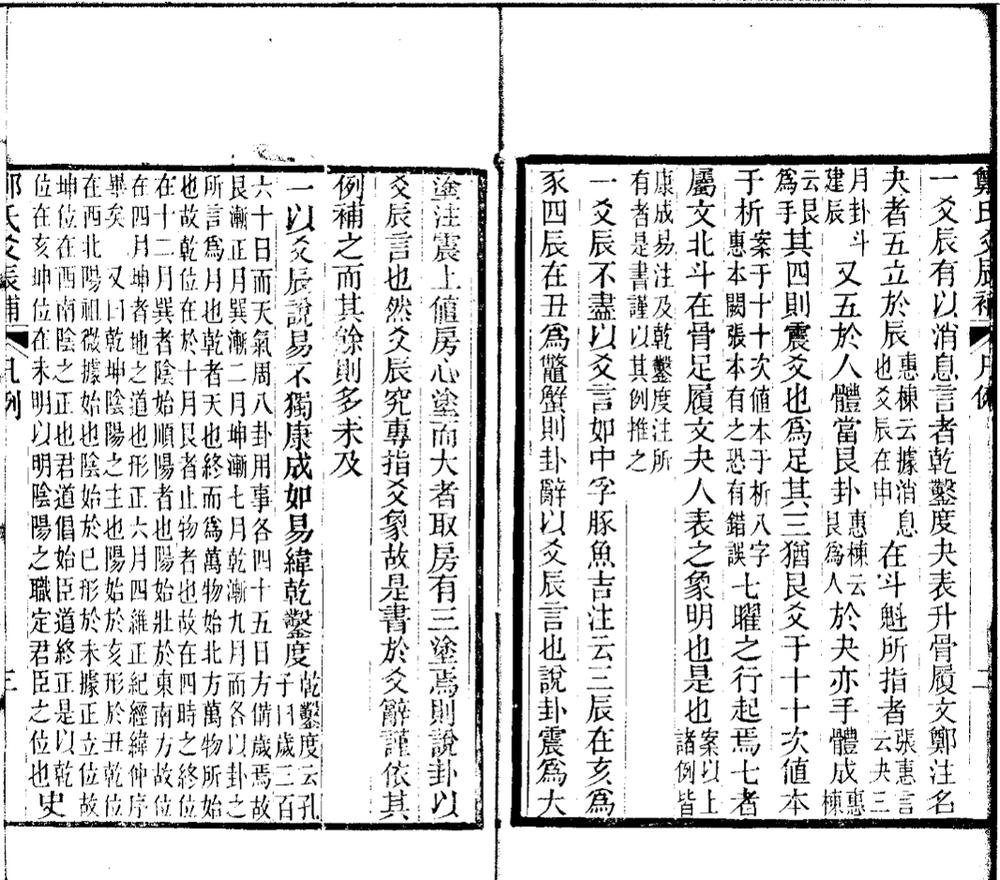 鄭氏爻辰補 凡例 二
一爻辰有以消息言者乾鑿度夬表升骨履文鄭注名
夬者五立於辰惠棟云據消息也爻辰在申在斗魁所指者張惠言云夬三
月卦斗建辰又五於人體當艮卦惠棟云艮爲人於夬亦手體成惠棟
云艮爲手其四則震爻也爲足其三猶艮爻于十十次值本
于析案于十十次値本于析八字惠本闕張本有之恐有錯誤七曜之行起焉七者
屬文北斗在骨足履文夬人表之象明也是也案以上諸例皆
康成易注及乾鑿度注所有者是書謹以其例推之
一爻辰不盡以爻言如中孚豚魚吉注云三辰在亥爲
豕四辰在丑爲鼈蟹則卦辭以爻辰言也說卦震爲大
塗注震上値房心塗而大者取房有三塗焉則說卦以
爻辰言也然爻辰究專指爻象故是書於爻辭謹依其
例補之而其餘則多未及
一以爻辰說易不獨康成如易緯乾鑿度乾鑿度云孔子曰歲三百
六十日而天氣周八卦用事各四十五日方備歲焉故
艮漸正月巽漸二月坤漸七月乾漸九月而各以卦之
所言爲月也乾者天也終而爲萬物始北方萬物所始
也故乾位在於十月艮者止物者也故在四時之終位
在十二月巽者陰始順陽者也陽始壯於東南方故位
在四月坤者地之道也形正六月四維正紀經緯仲序
畢矣 又曰乾坤陰陽之主也陽始於亥形於丑乾位
在西北陽祖微據始也陰始於巳形於未據正立位故
坤位在西南陰之正也君道倡始臣道終正是以乾
位在亥坤位在未明以明陰陽之職定君臣之位也史
鄭氏爻辰補 凡例 三